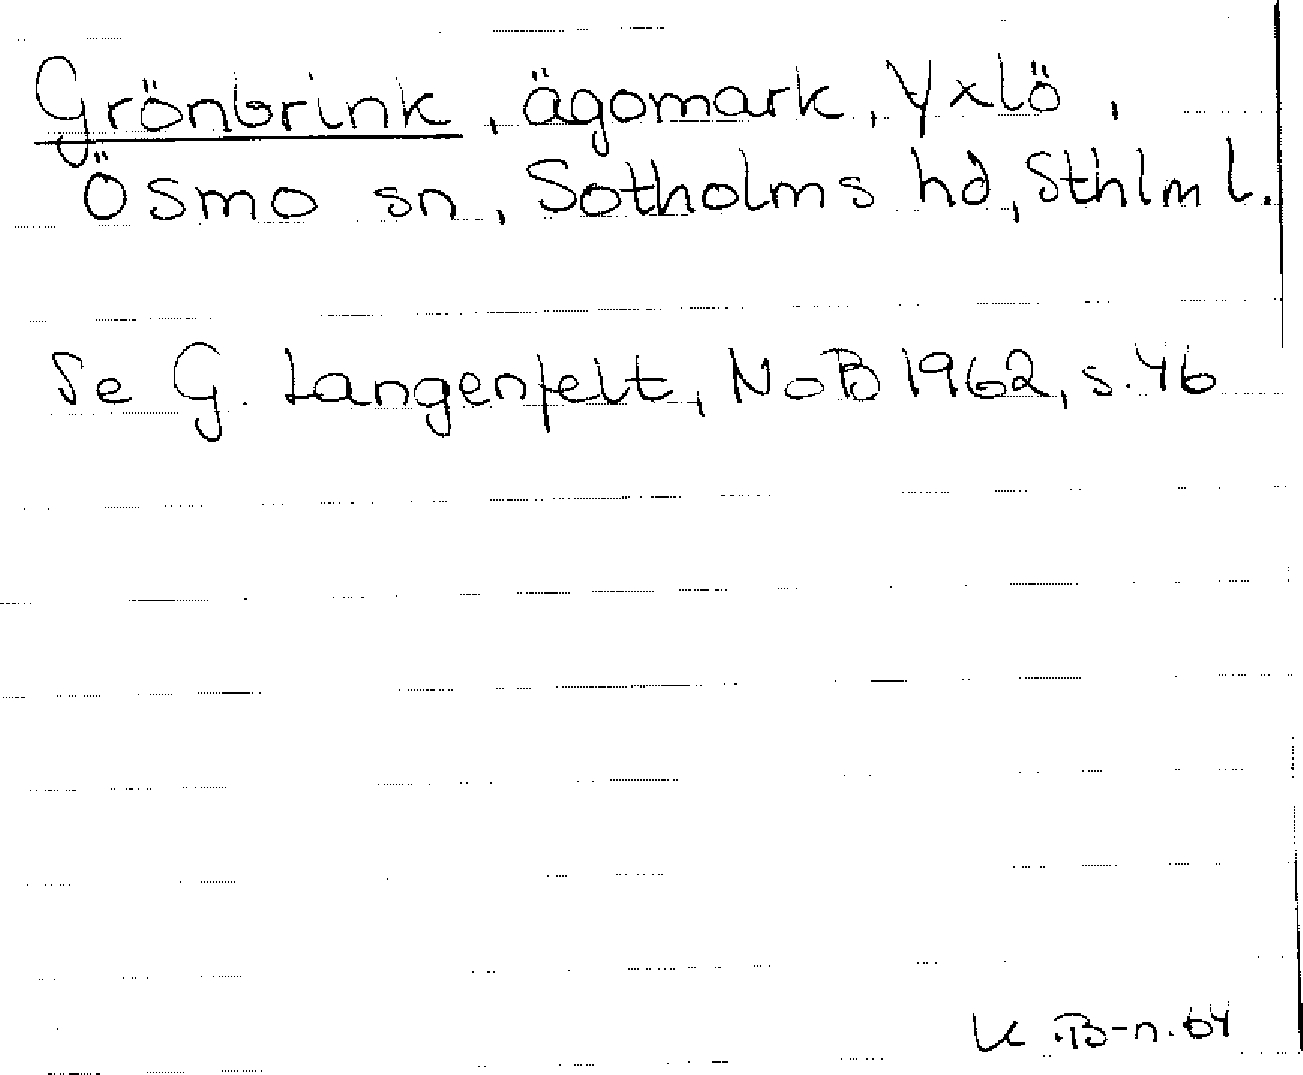 Grönbrink, ägomark, Yxlö,
Ösmo sn, Sotholms hd, Sthlm l.
Se G. Langenfelt, NoB 1962, s. 46
K .B-n. 64